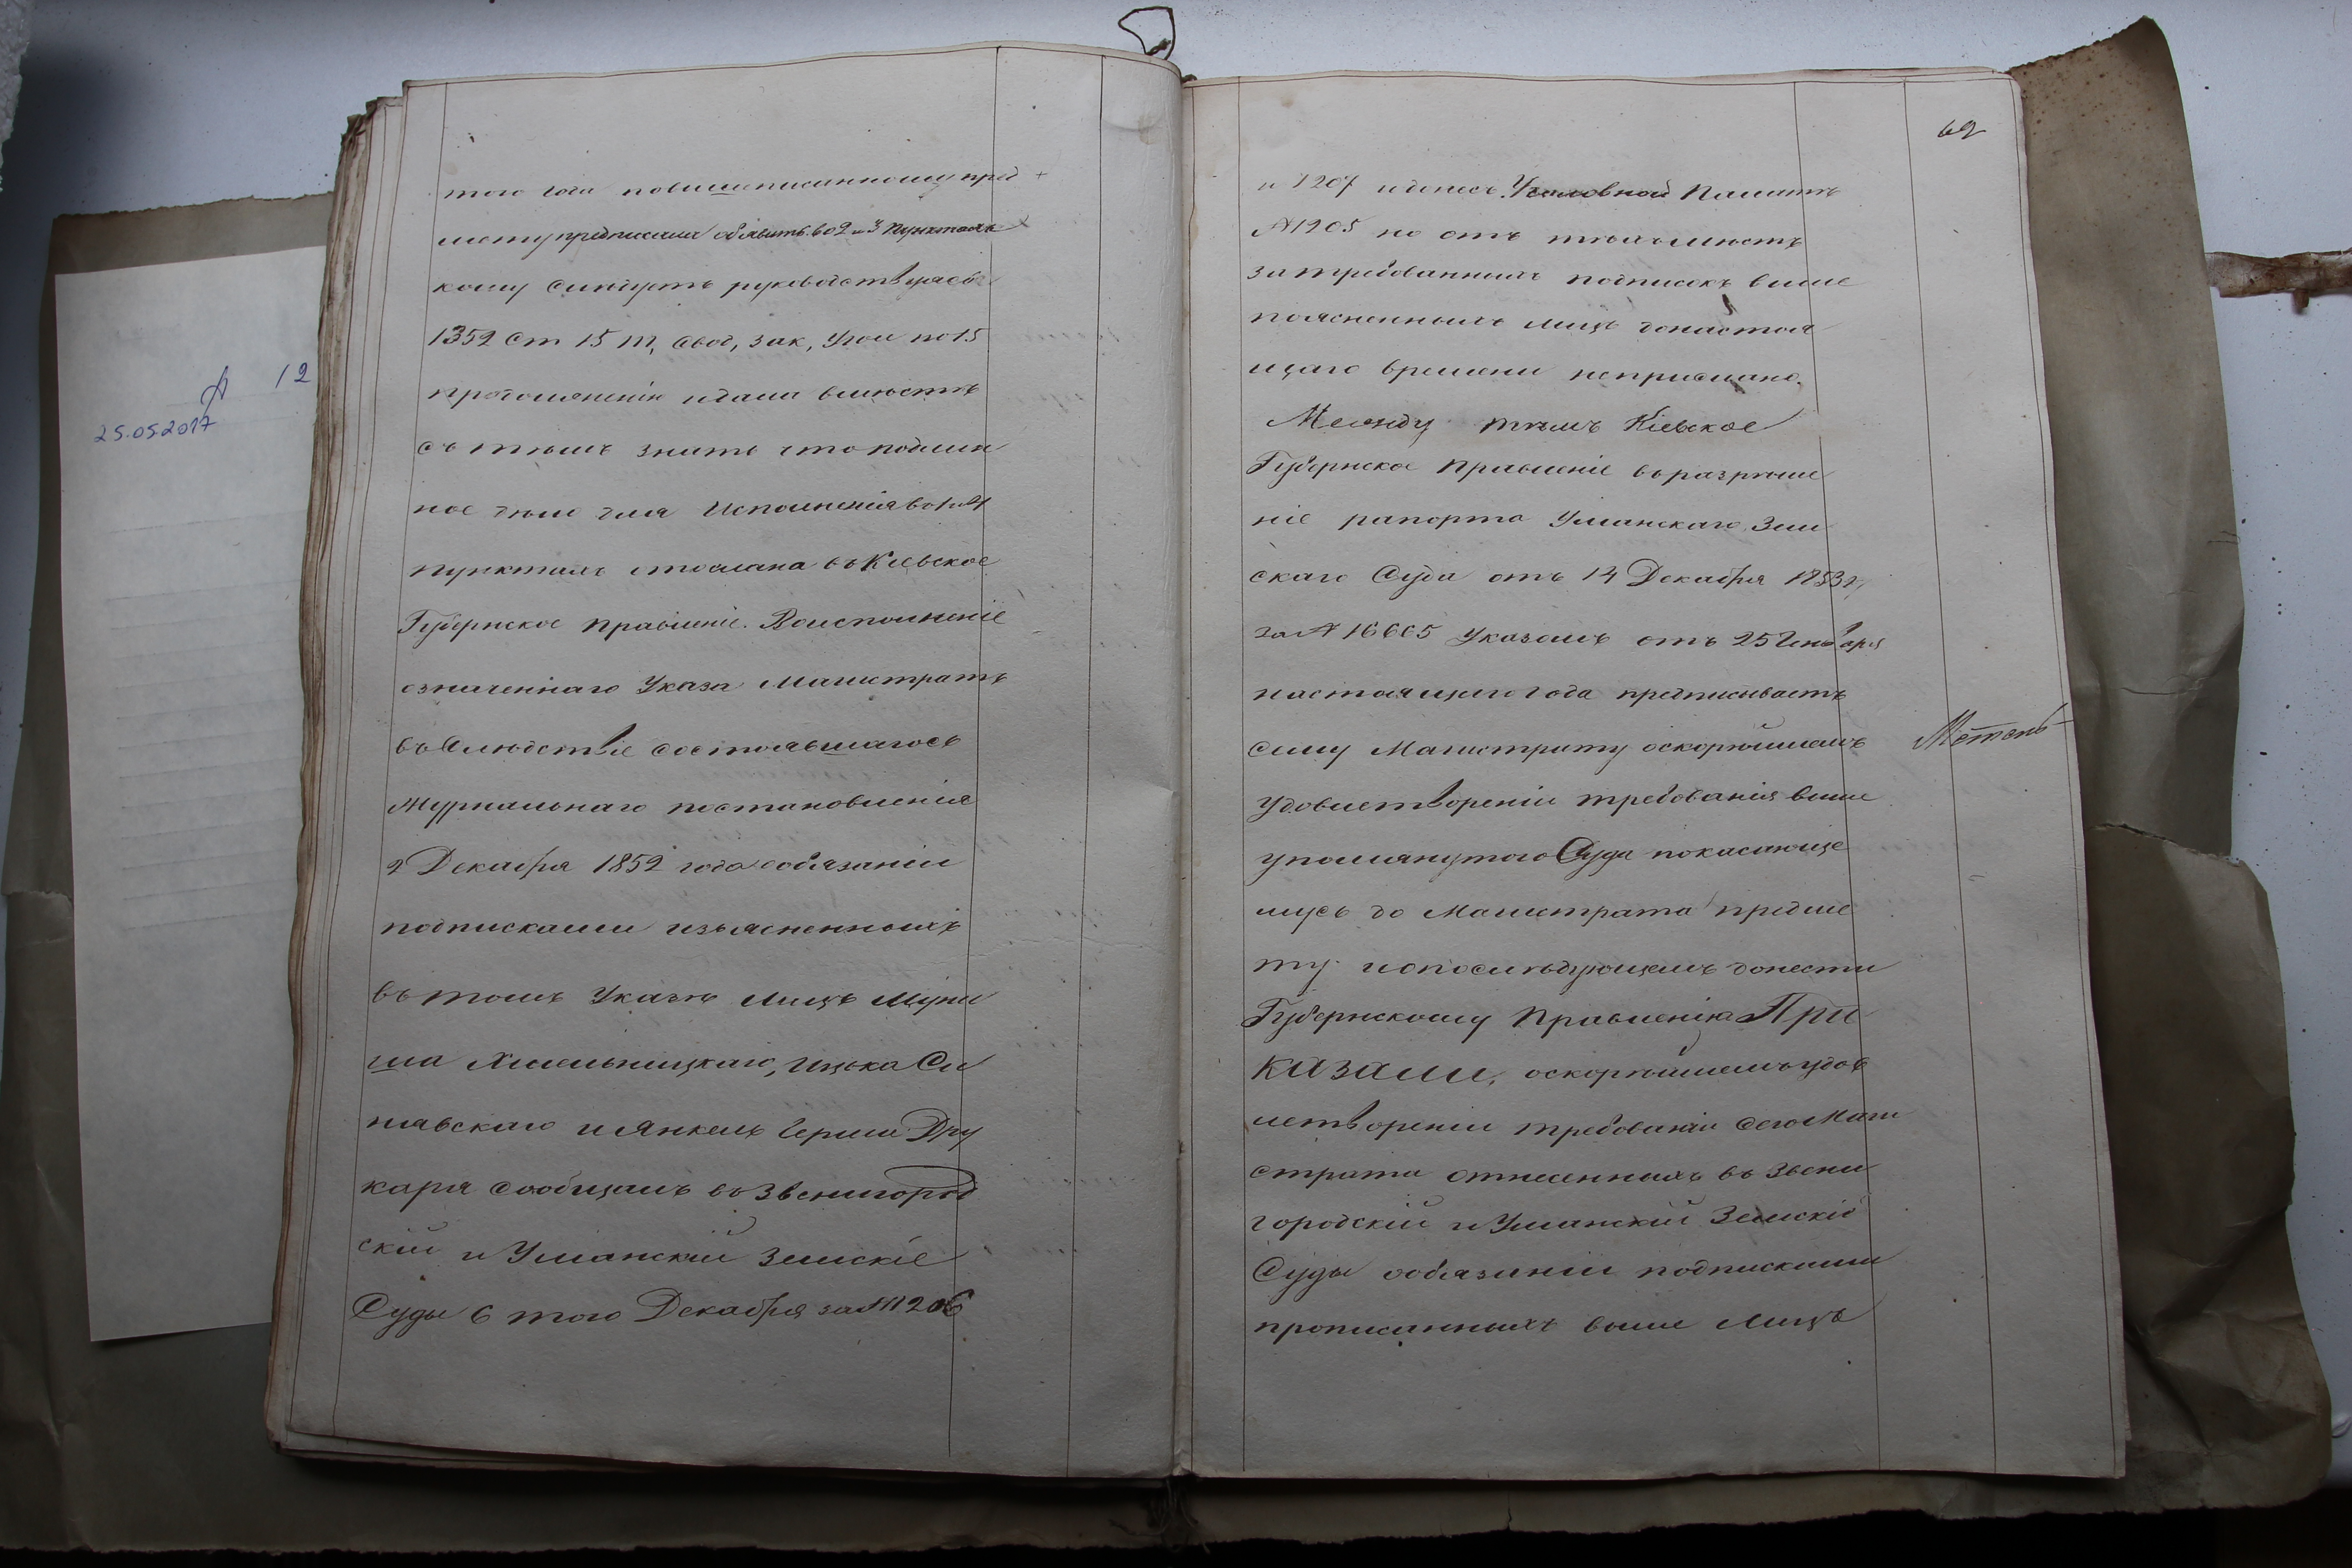 № 12
25.05.2017
того года повышеписанному пред
мету предписала объявить во 2 и 3 пунктахъ
кому слѣдуетъ руководствуясь
1352 ст 15 т, свод, зак, угол по 15
продолженію и дала вмѣстѣ
съ тѣмъ знать что подлин
ное дѣло для исполненія по 1 и 4
пунктамъ отослана въ Кіевское
Губернское Правленіе. Во исполненіе
означеннаго Указа Магистратъ
въ слѣдствіе состоявшагось
Журнальнаго постановленія
2 Декабря 1852 года о обязаніи
подписками изъясненныхъ
въ томъ Указѣ лицъ
Хмельницкаго, Ицька Си
нявскаго и Янкель Герша Дру
каря сообщалъ въ Звенигород
скій и Уманскій Земскіе
Суды 6 того Декабря за № 1206
62
и 1207 и донесъ Уголовной Палатѣ
№ 1205 но отъ тѣхъ мѣстъ
затребованныхъ подписокъ выше
поясненныхъ лицъ до настоя
щаго времени не прислано.
Между тѣмъ Кіевское
Губернское Правленіе въ разрѣше
ніе рапорта Уманскаго Зем
скаго Суда отъ 14 Декабря 1853 г,
за № 16665 Указомъ отъ 25 Генваря
настоящаго года предписываетъ
сему Магистрату о скорѣйшемъ
удовлетвореніи требованія выше
упомянутого Суда по касающе
мусь до Магистрата предме
ту и о послѣдующемъ донести
Губернскому Правленію При
казали, о скорѣйшемъ удов
летвореніи требованіи сего Маги
страта отнесенныхъ въ Звени
городскій и Уманскій Земскіе
Суды о обязаніи подписками
прописанныхъ выше лицъ